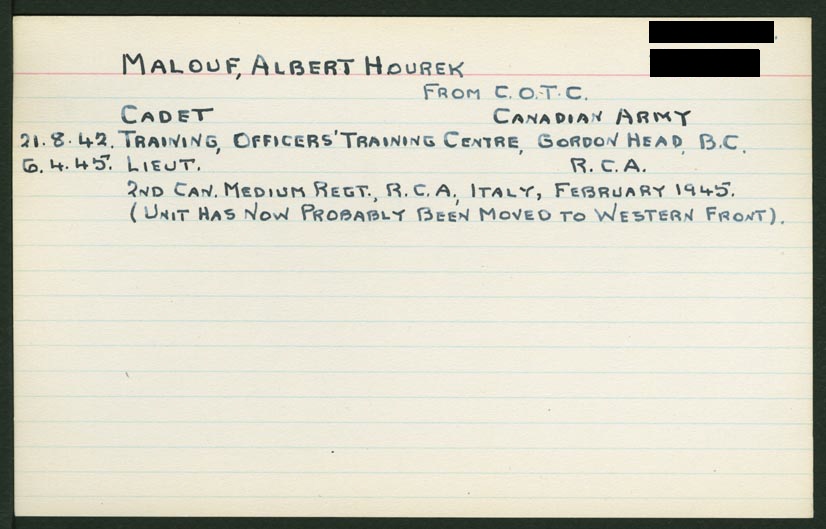 MALOUF, ALBERT HOUREK
FROM C.O.T.C.
CADET CANADIAN ARMY
21.8.42. TRAINING, OFFICERS' TRAINING CENTRE, GORDON HEAD, B.C.
6.4.45. LIEUT. R.C.A.
2ND CAN. MEDIUM REGT., R.C.A., ITALY, FEBRUARY 1945.
(UNIT HAS NOW PROBABLY BEEN MOVED TO WESTERN FRONT).